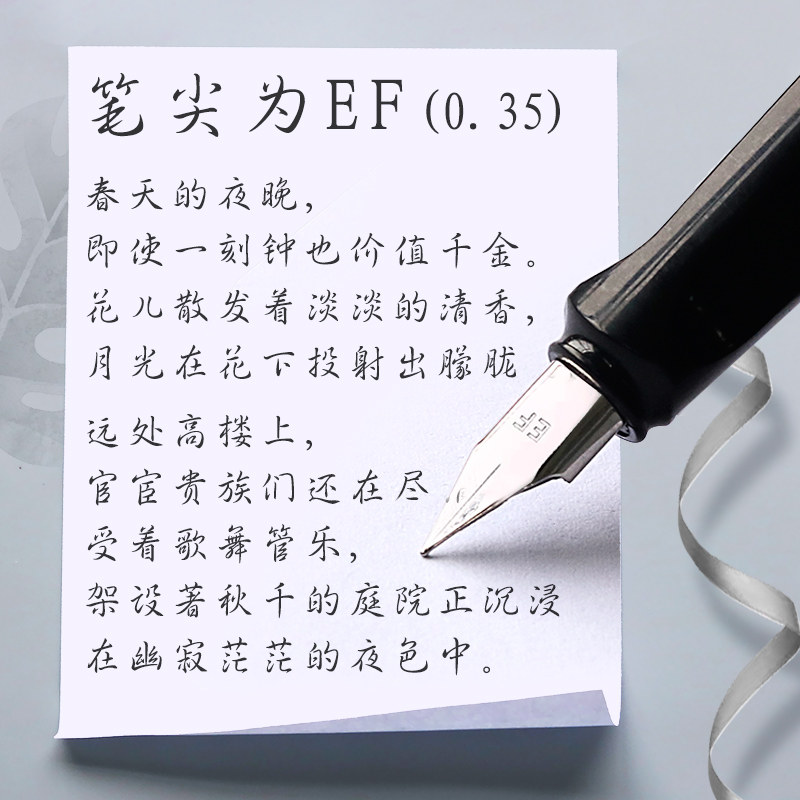 笔尖为EF(0.35)
春天的夜晚，
即使一刻钟也价值千金。
花儿散发着淡淡的清香，
月光在花下投射出朦胧
远处高楼上，
官宦贵族们还在尽
受着歌舞管乐，
架设著秋千的庭院正沉浸
在幽寂茫茫的夜色中。
EF